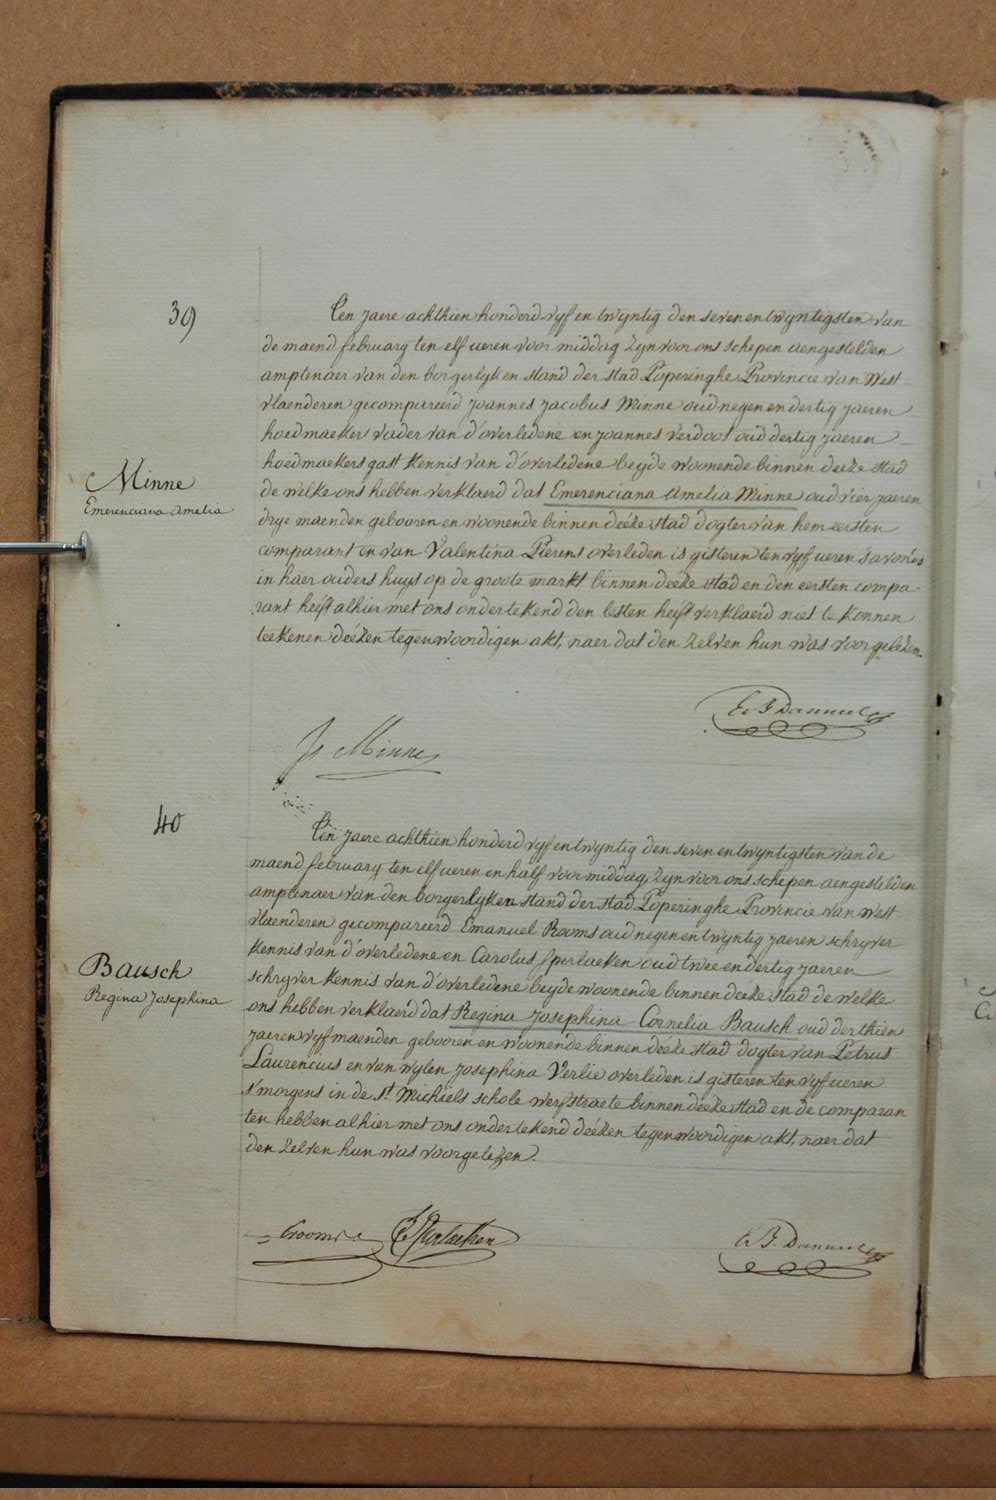 39
Ten jaere achthien honderd vyf en twyntig den seven en twyntigsten van
de maend february ten elf ueren voor middag zyn voor ons schepen aengestelden
amptenaer van den borgerlyken stand der stad Poperinghe Provincie van West
vlaenderen gecompareerd Joannes Jacobus Minne oud negen en dertig jaeren
hoedmaeker vader van d'overledene en Joannes Verdoot oud dertig jaeren
hoedmaekers gast kennis van d'overledene beyde woonende binnen deeze stad
Minne
Emerenciana Amelia
de welke ons hebben verklaerd dat Emerenciana Amelia Minne oud vier jaeren
drye maenden gebooren en woonende binnen deeze stad dogter van hem eersten
comparant en van Valentina Pierens overleden is gisteren ten vyf ueren savonds
in haer ouders huys op de groote markt binnen deeze stad en den eersten compa-
rant heeft alhier met ons ondertekend den lesten heeft verklaerd niet te konnen
teekenen deézen tegenwoordigen akt, naer dat den zelven hun was voorgelezen.
Js Minne
40
Ten jaere achthien honderd vyf en twyntig den seven en twyntigsten van de
maend february ten elf ueren en half voor middag, zyn voor ons schepen aengestelden
amptenaer van den borgerlyken stand der stad Poperinghe Provincie van West
vlaenderen gecompareerd Emanuel Rooms oud negen en twyntig jaeren schryver
kennis van d'overledene en Carolus Sperlaeken oud twee en dertig jaeren
Bausch
Regina Josephina
schryver kennis van d'overledene beyde woonende binnen deeze stad de welke
ons hebben verklaerd dat Regina Josephina Cornelia Bausch oud derthien
jaeren vyf maenden gebooren en woonende binnen deéze stad dogter van Petrus
Laurencius en van wylen Josephina Verlie overleden is gisteren ten vyf ueren
s'morgens in de St Michiels schole werfstraete binnen deeze stad en de comparan
ten hebben alhier met ons ondertekend deézen tegenwoordigen akt, naer dat
den zelven hun was voorgelezen.